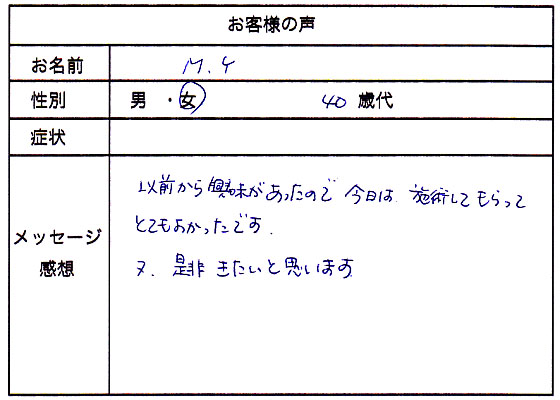 お客様の声
お名前 M.Y
性別 男 ・ 女 40 歳代
症状
メッセージ
感想
以前から興味があったので 今日は、施術してもらって
とてもよかったです.
又、是非 きたいと思います